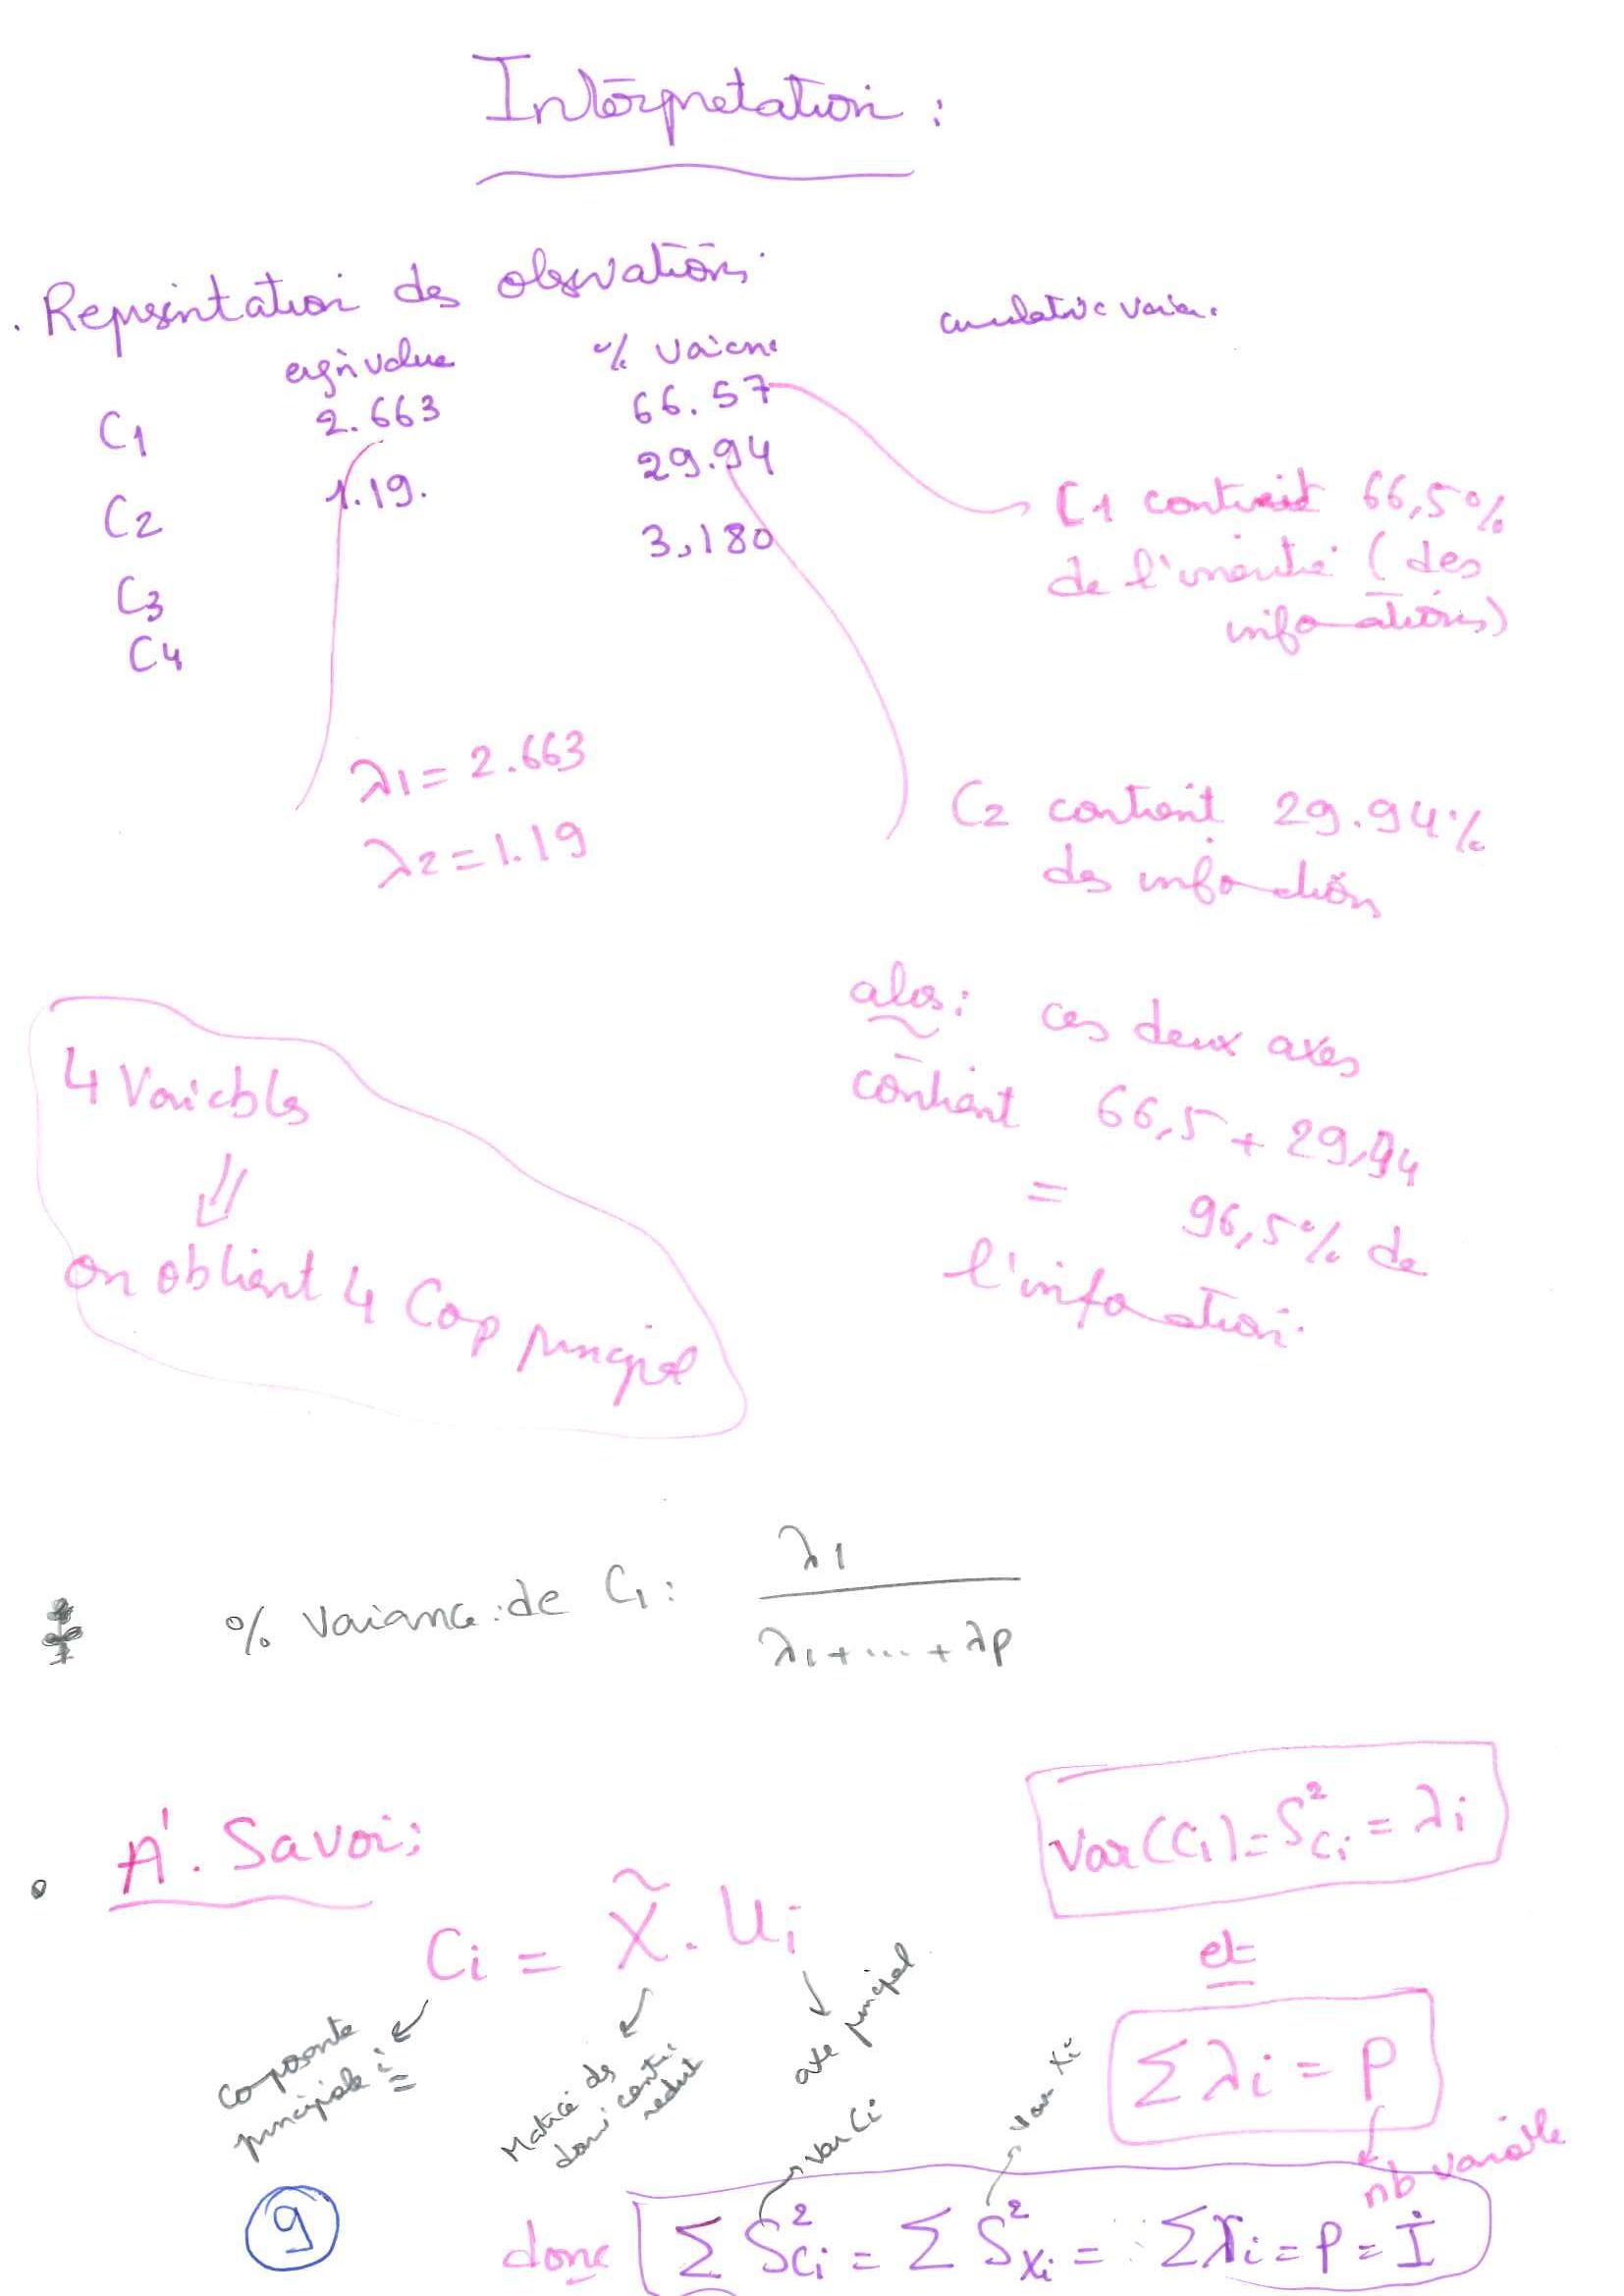 Intérpretation :
. Représintation des observations.
eiginvalue % Vaianc cumulative vaian.
C1 2.663 66.57
C2 1.19. 29.94
C3 3,180
C4
C1 contient 66,5%
de l'inertie (des
infomations)
λ1 = 2.663
λ2 = 1.19
C2 contient 29.94%
des infomation
alos : ces deux axes
contient 66,5 + 29,94
= 96,5% de
l'infomation.
4 Vaiables
⇓
on obtient 4 Cop principal
% Vaiance : de C1 : λ1 / (λ1 + ... + λp)
• A'. Savoi :
Ci = X̃ . Ui
coposante principale i
Matice ds donné centré reduit
axe principal
Var(Ci) = S²Ci = λi
et
Σ λi = P
nb variable
var Ci
var xi
donc Σ S²Ci = Σ S²Xi = Σ λi = P = I
9